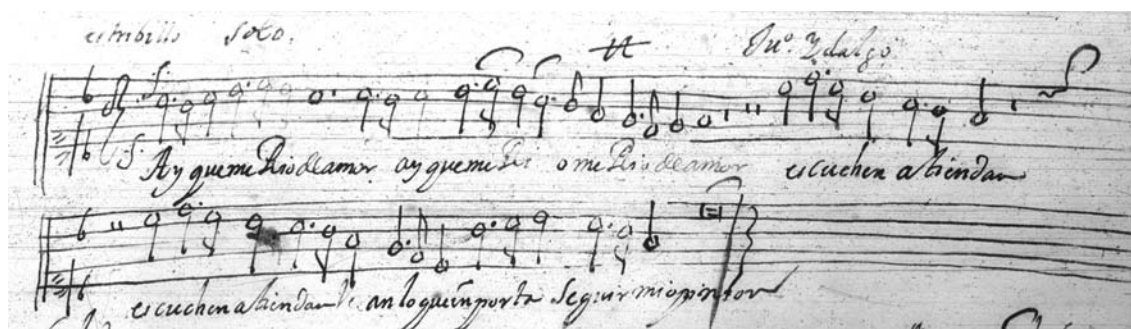 estribillo solo. Juº. Ydalgo
Ay que me Rio de amor ay que me Ri o me Rio de amor escuchen atiendan
escuchen atiendan an lo que inporta seguir mi opinion